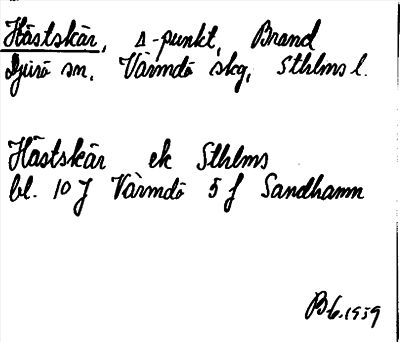 Hästskär, Δ-punkt, Brand
Djurö sn, Värmdö skg, Sthlms l.
Hästskär ek Sthlms
bl. 10 J Värmdö 5 f Sandhamn
B 6.1959